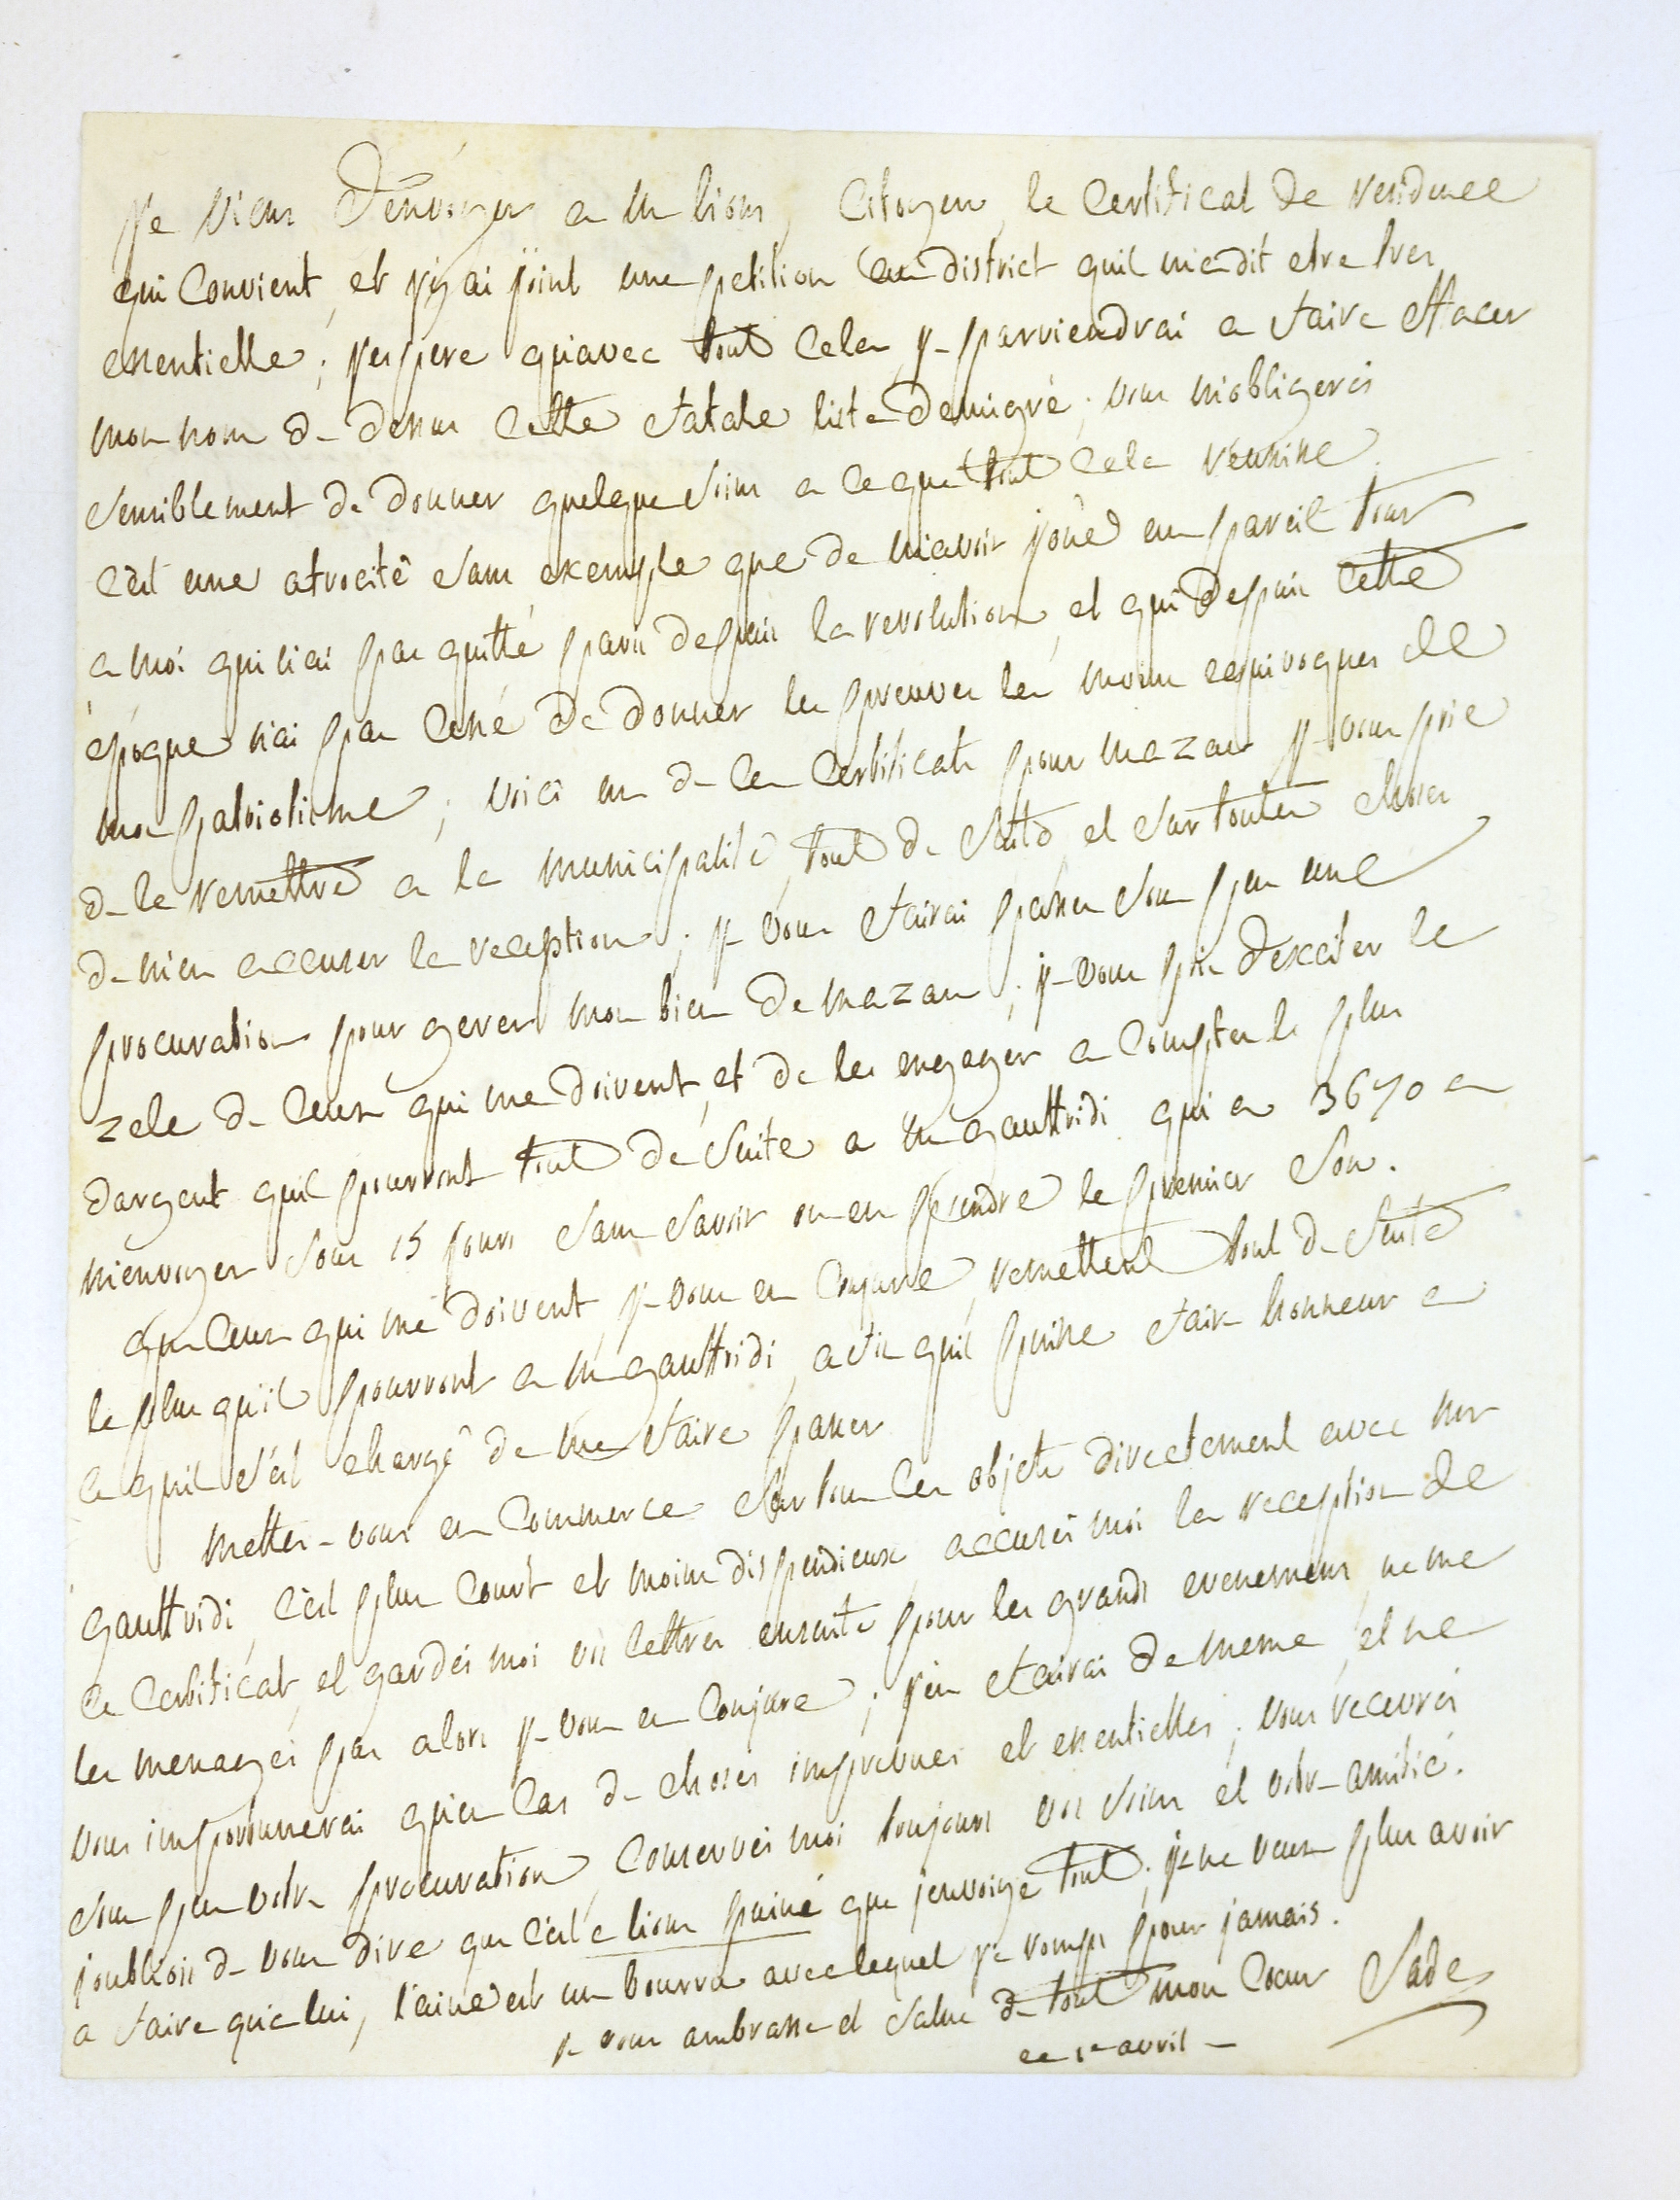 Je viens d'énvoyer a m lions, Citoyen, le Certificat de residence
qui Convient, et j'y ai joint une petition au district quil m'a dit etre tres
essentielle; j'espere qu'avec tout Cela je parviendrai a faire effacer
mon nom de dessus Cette fatale liste demigré; vous m'obligerés
sensiblement de donner quelque soins a ce que tout cela réussisse
C'est une atrocité sans exemple que de m'avoir joué un pareil tour
a moi qui n'ai pas quitté paris depuis la revolution, et qui depuis Cette
époque n'ai pas Cessé de donner les preuves les moins equivoques de
mon patriotisme; voici un de ces Certificats pour mazan je vous prie
de le remettre a la municipalité, tout de suite et sur toutes choses
de m'en accuser la reception; je vous fairai passer sous peu une
procuration pour gerer mon bien de mazan; je vous prie d'exciter le
zele de Ceux qui me doivent, et de les engager a Compter le plus
d'argent quil pourront tout de suite a m gauffridi qui a 3670 a
m'envoyer sous 15 jours sans savoir ou en prendre le premier sou.
que Ceux qui me doivent, je vous en Conjure, remettent tout de suite
le plus qu'il pourront a m gauffridi, afin quil puisse faire honneur a
ce quil s'est chargé de me faire passer
mettes-vous en Commerce sur tous Ces objets directement avec mr
gauffridi, C'est plus Court et moins dispendieux accusés moi la reception de
ce Certificat, et gardés moi vos lettres ensuite pour les grands evenemens, ne me
les menagés pas alors je vous en Conjure; j'en fairai de meme, et ne
vous importunerai qu'en Cas de choses imprevues et essentielles; vous recevrés
sous peu votre procuration, Conservés moi toujours vos soins et votre amitié.
j'oubliois de vous dire que C'est a lions puiné que j'envoiye tout; je ne veux plus avoir
a faire qu'a lui, l'ainé est un bourru avec lequel je romps pour jamais.
je vous ambrasse et salue de tout mon Coeur Sade
ce 1er avril